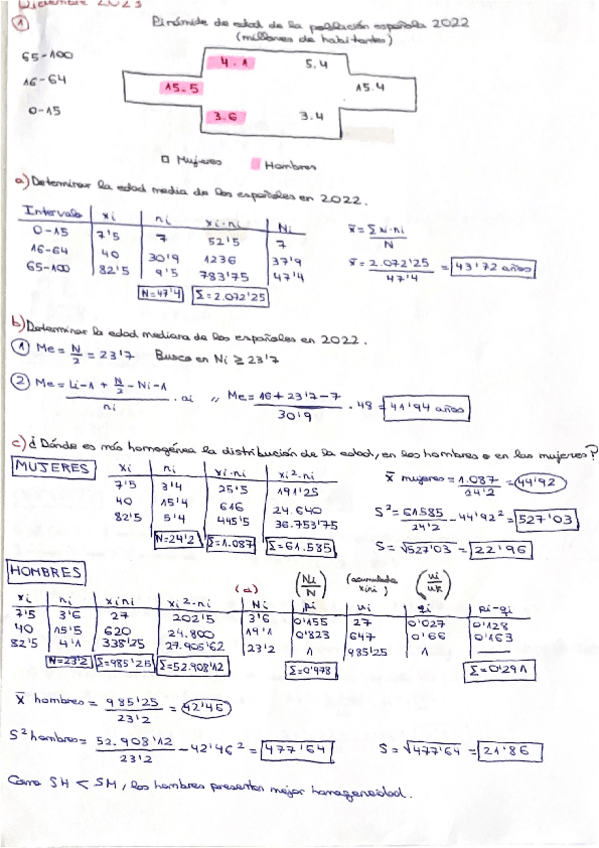 Diciembre 2023
① Pirámide de edad de la población española 2022
(millones de habitantes)
65-100 4.1 5.4
16-64 15.5 15.4
0-15 3.6 3.4
Mujeres Hombres
a) Determinar la edad media de los españoles en 2022.
Intervalo xi ni xi·ni Ni
0-15 7'5 7 52'5 7
16-64 40 30'9 1236 37'9
65-100 82'5 9'5 783'75 47'4
N=47'4 Σ=2.072'25
x̄ = Σ xi·ni / N
x̄ = 2.072'25 / 47'4 = 43'72 años
b) Determinar la edad mediana de los españoles en 2022.
① Me = N/2 = 23'7 Busco en Ni ≥ 23'7
② Me = Li-1 + N/2 - Ni-1 / ni · ai ,, Me = 16 + 23'7 - 7 / 30'9 · 48 = 41'94 años
c) ¿Dónde es más homogénea la distribución de la edad, en los hombres o en las mujeres?
MUJERES
xi ni xi·ni xi²·ni
7'5 3'4 25'5 191'25
40 15'4 616 24.640
82'5 5'4 445'5 36.753'75
N=24'2 Σ=1.087 Σ=61.585
x̄ mujeres = 1.087 / 24'2 = 44'92
S² = 61.585 / 24'2 - 44'92² = 527'03
S = √527'03 = 22'96
HOMBRES
(a) (Ni/N) (acumulada xini) (ui/uk)
xi ni xini xi²·ni Ni pi ui qi pi-qi
7'5 3'6 27 202'5 3'6 0'155 27 0'027 0'128
40 15'5 620 24.800 19'1 0'823 647 0'66 0'163
82'5 4'1 338'25 27.905'62 23'2 1 985'25 1 —
N=23'2 Σ=985'25 Σ=52.908'12 Σ=0'978 Σ=0'291
x̄ hombres = 985'25 / 23'2 = 42'46
S² hombres = 52.908'12 / 23'2 - 42'46² = 477'64 S = √477'64 = 21'86
Como SH < SM, los hombres presentan mejor homogeneidad.